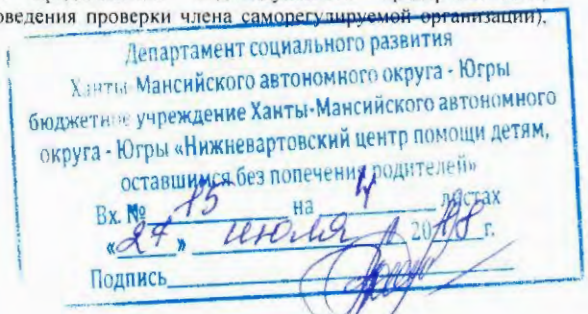 оведения проверки члена саморегулируемой организации).
Департамент социального развития
Ханты-Мансийского автономного округа - Югры
бюджетное учреждение Ханты-Мансийского автономного
округа - Югры «Нижневартовский центр помощи детям,
оставшимся без попечения родителей»
Вх. № 15 на 4 листах
«27» июля 2018 г.
Подпись